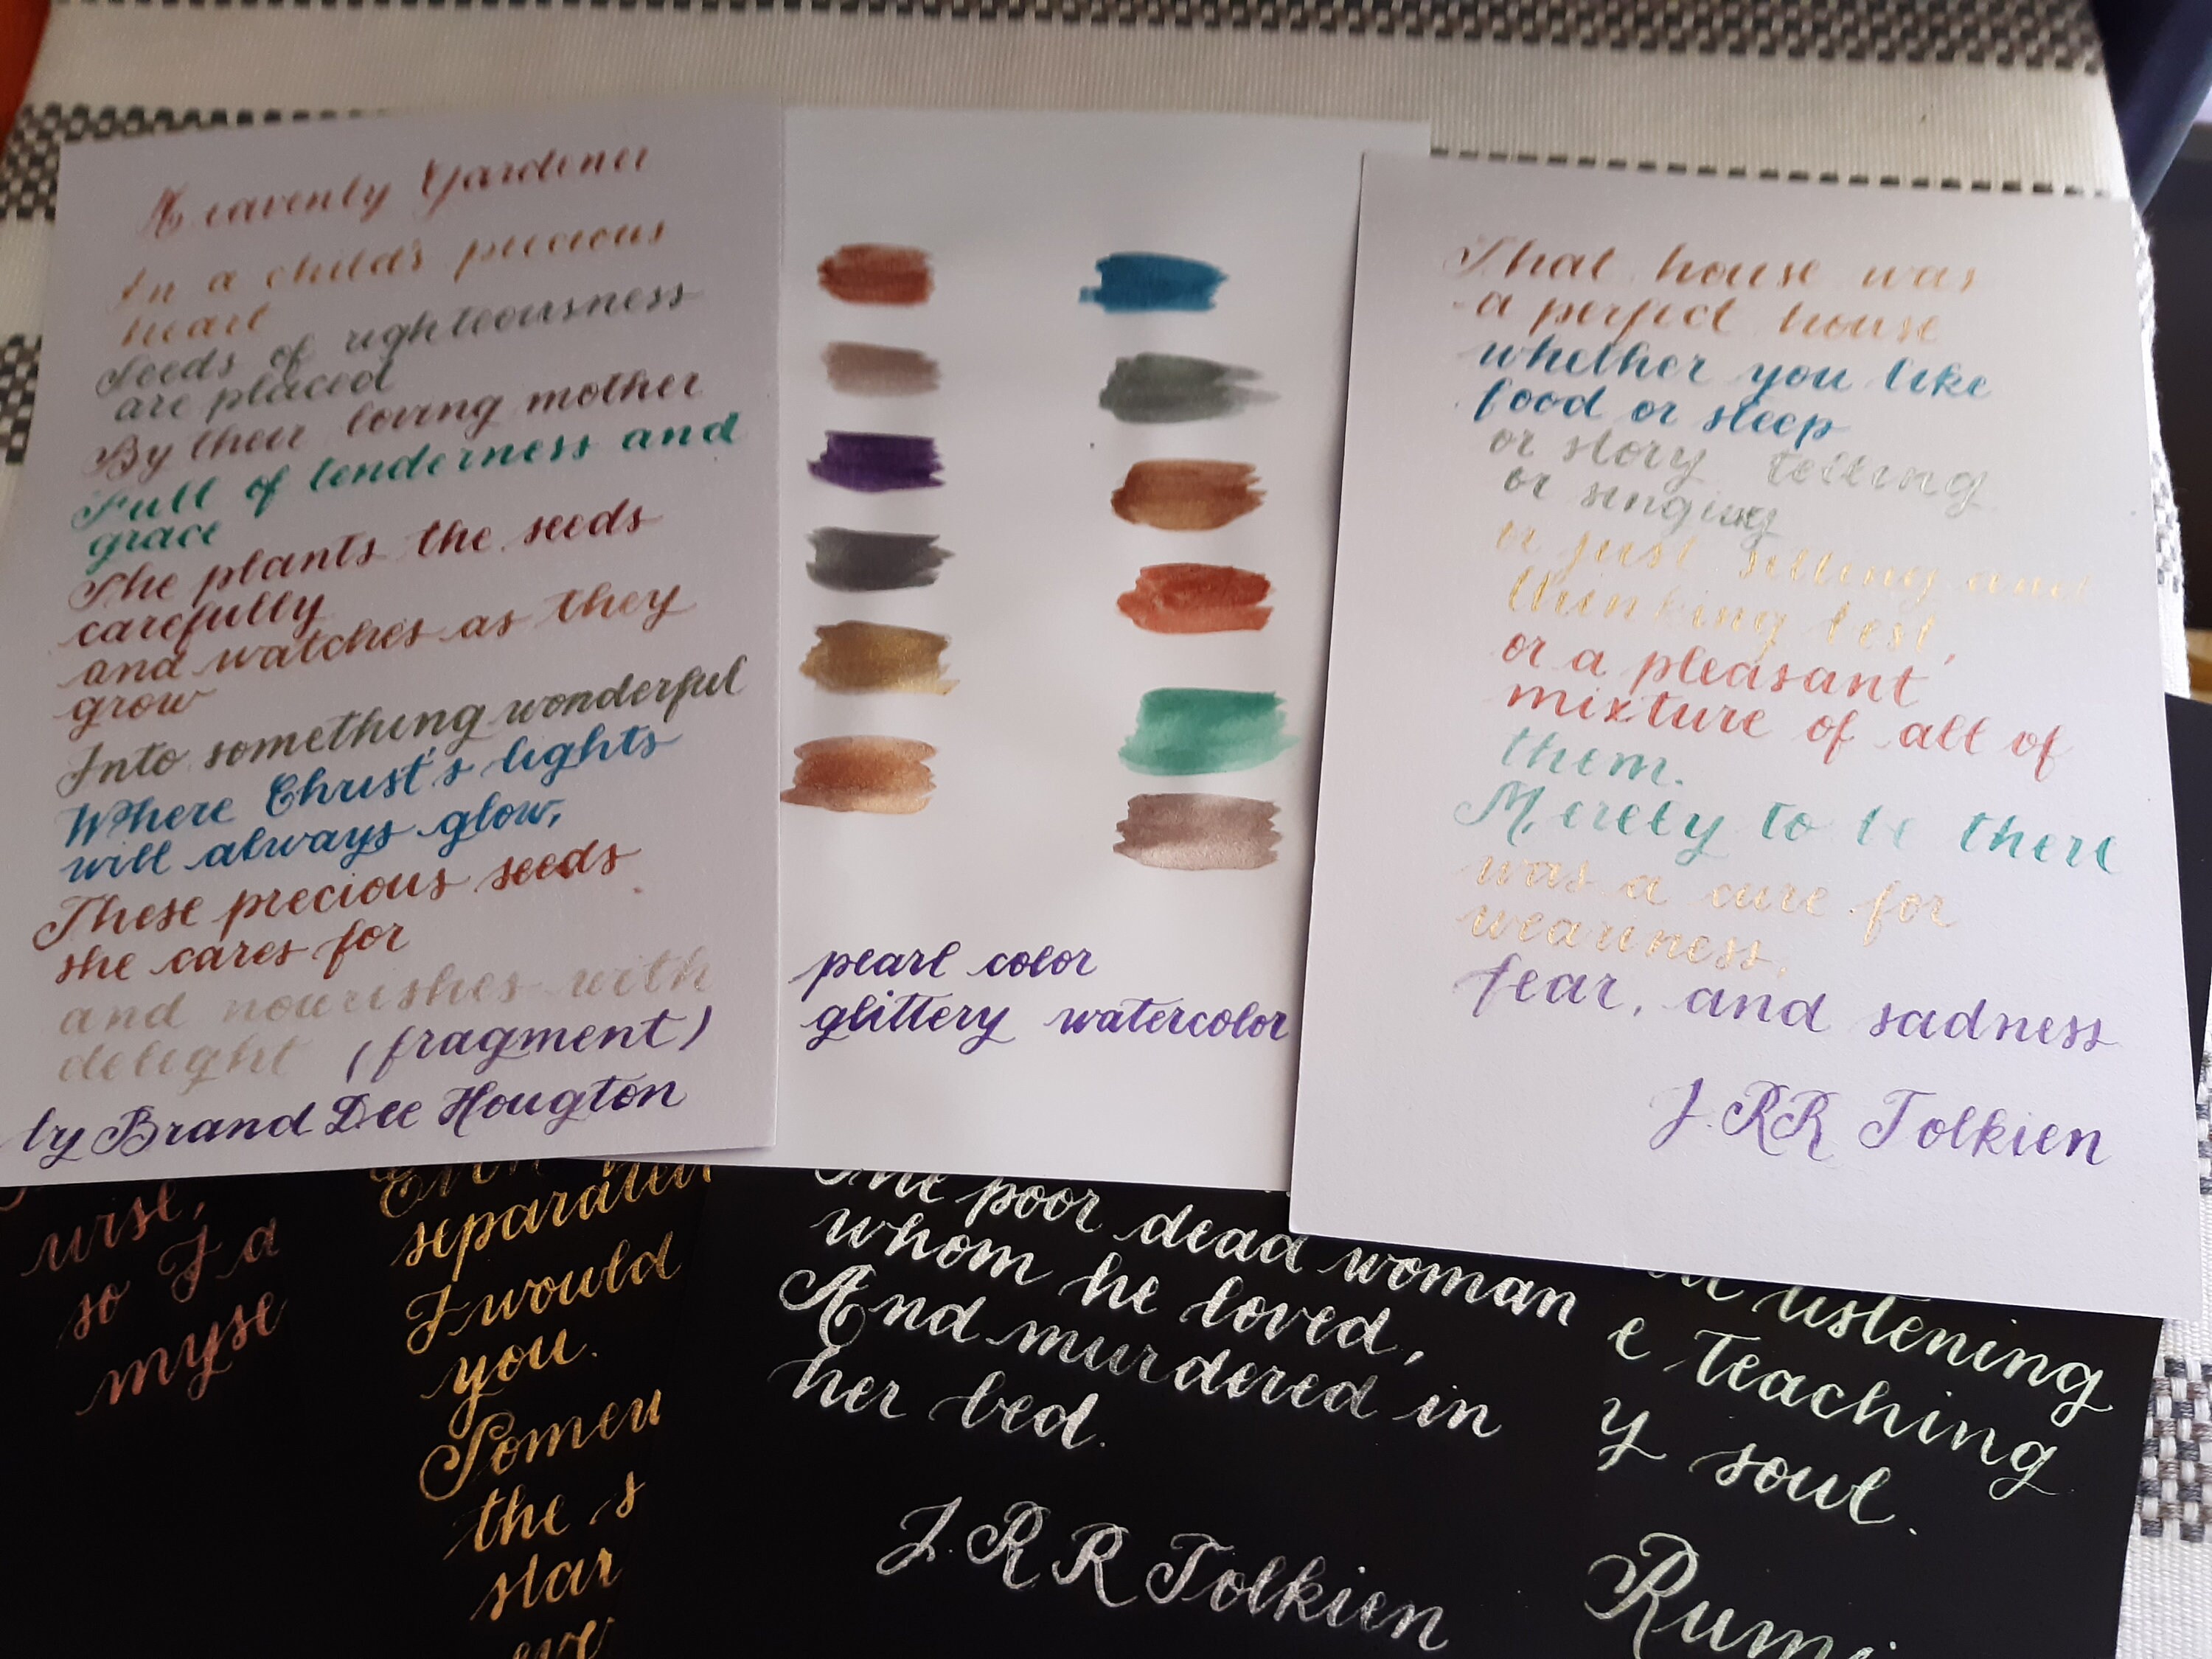 Heavenly Gardener
In a child's precious
heart
Seeds of righteousness
are placed
By their loving mother
Full of tenderness and
grace
She plants the seeds
carefully
and watches as they
grow
Into something wonderful
Where Christ's lights
will always glow,
These precious seeds
she cares for
and nourishes with
delight (fragment)
by Brand Dee Hougton
pearl color
glittery watercolor
That house was
a perfect house
whether you like
food or sleep
or story telling
or singing
or just sitting and
thinking best,
or a pleasant
mixture of all of
them.
Merely to be there
was a cure for
weariness,
fear, and sadness
J. RR Tolkien
wise,
so I a
myse
separated
I would
you.
the s
star
eve
The poor dead woman
whom he loved,
And murdered in
her bed.
J. R R Tolkien
listening
e teaching
y soul.
Rumi